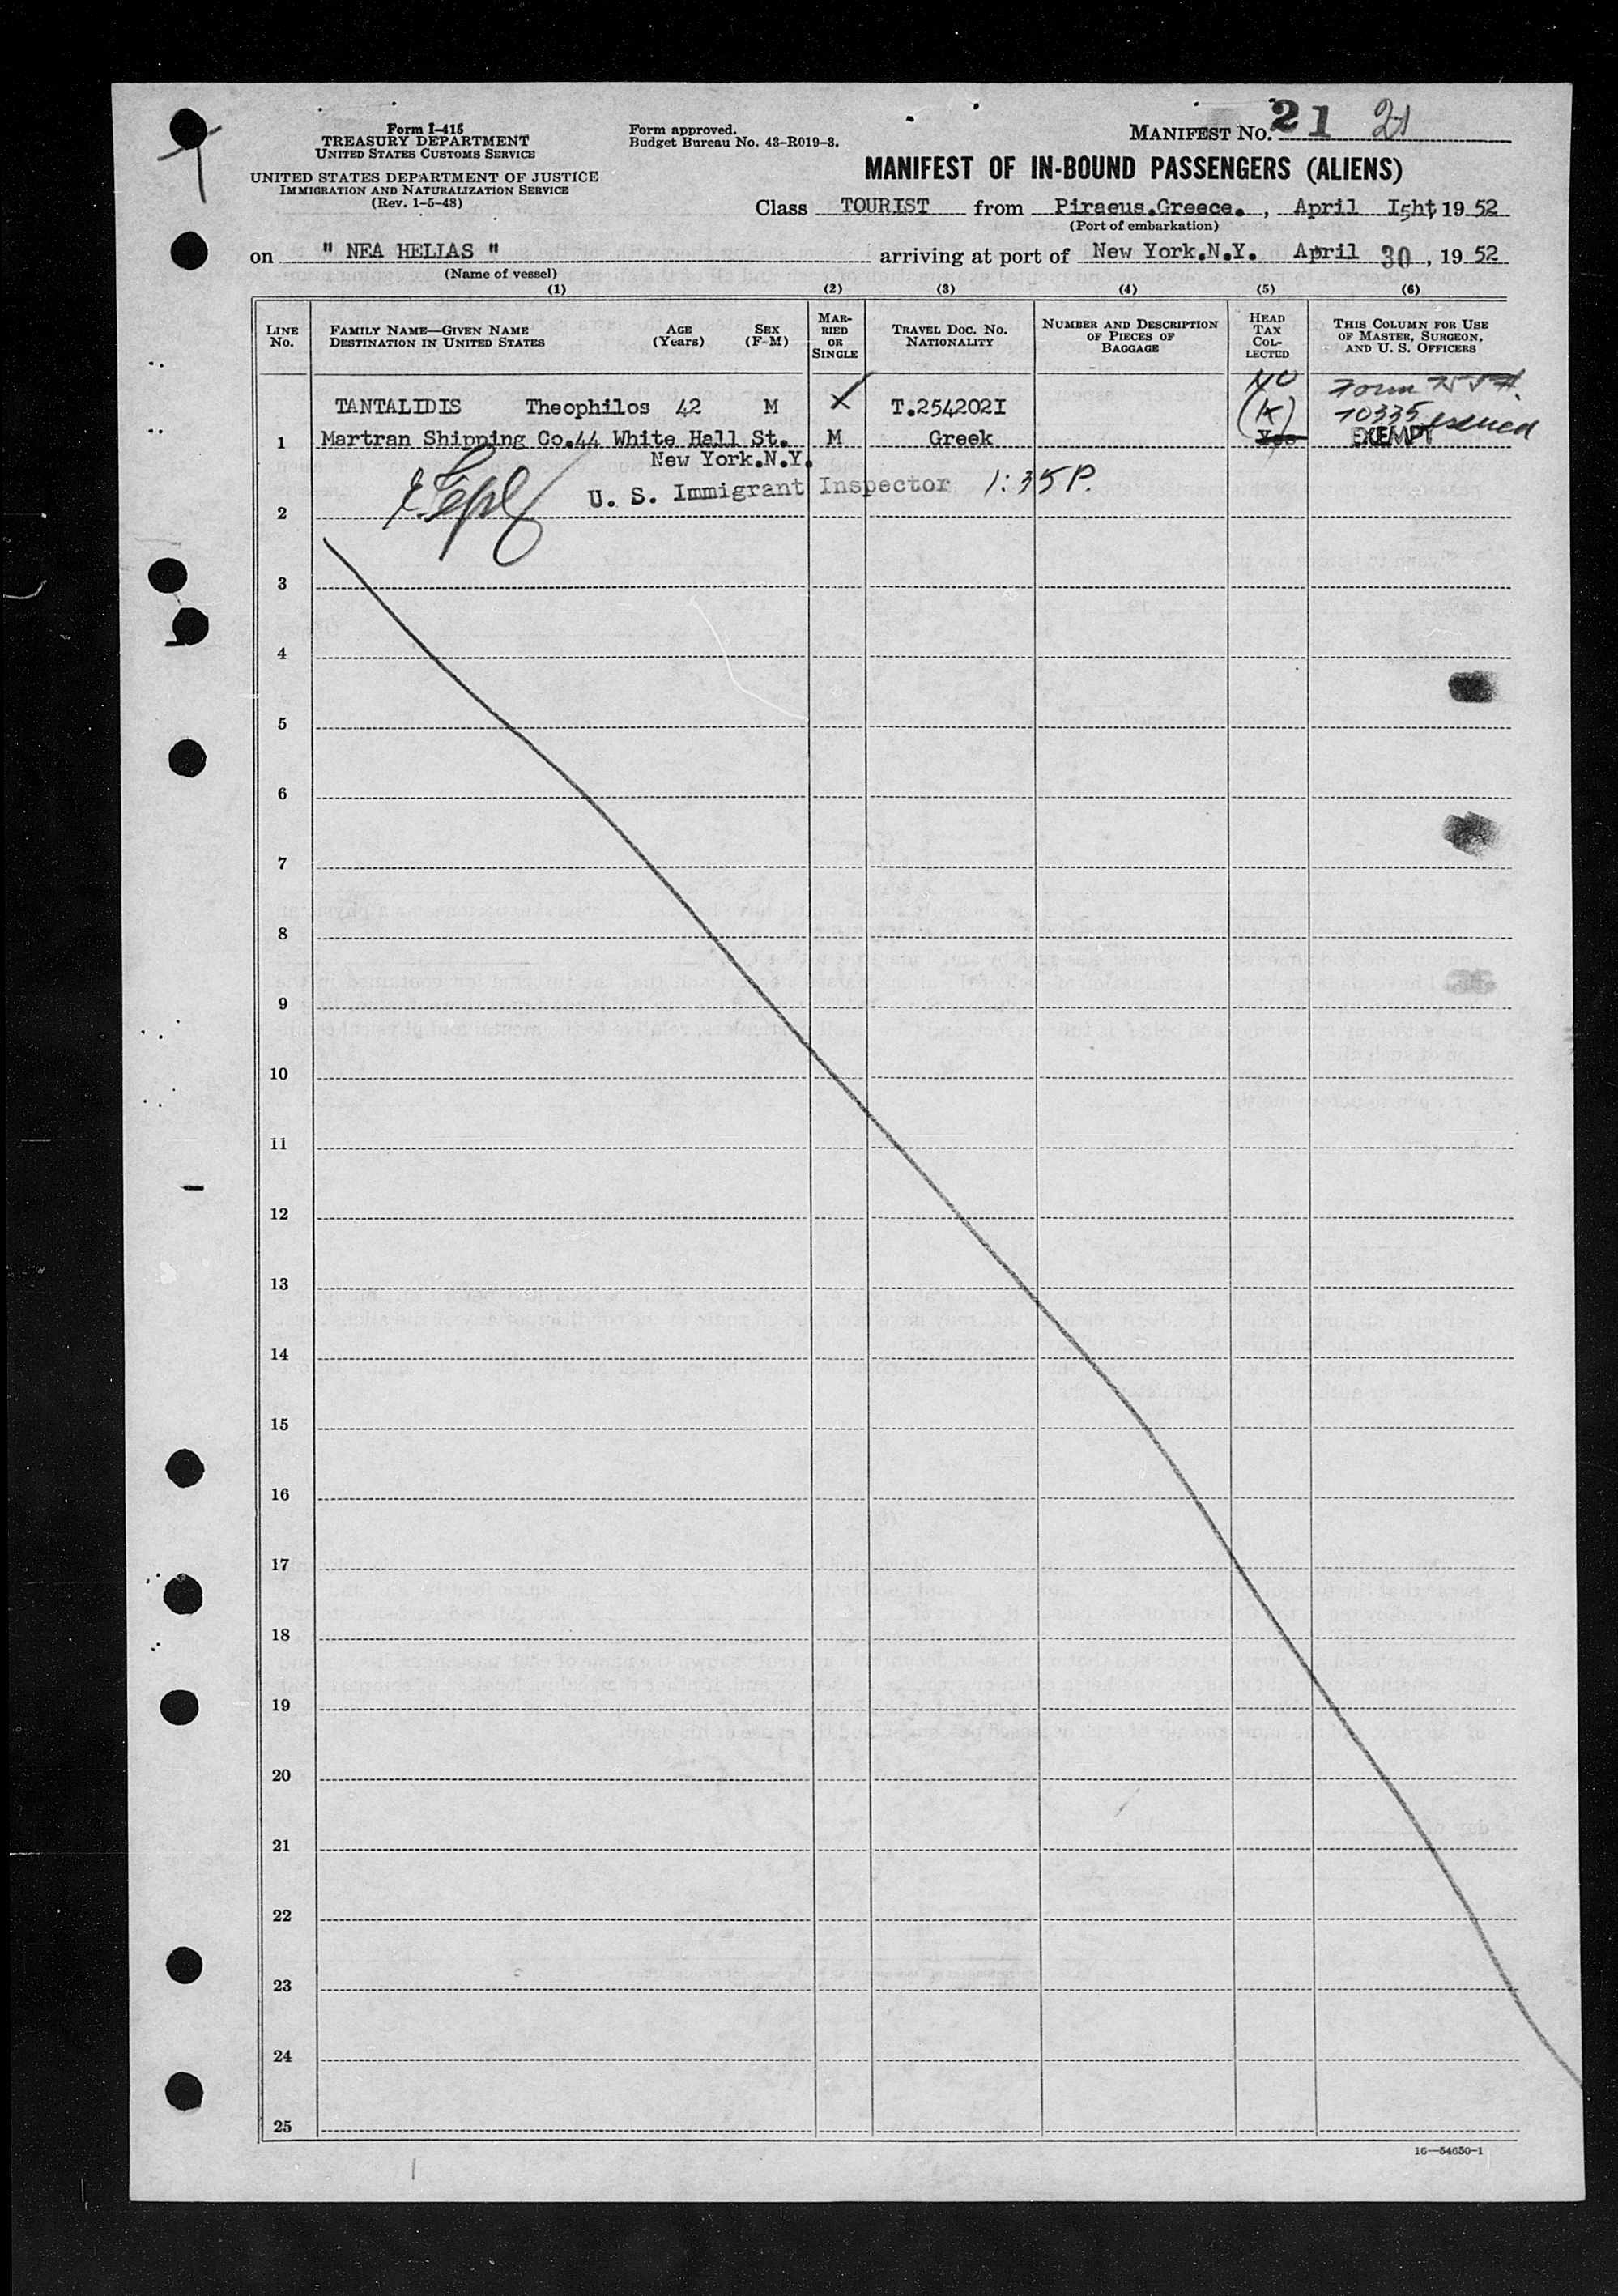 MANIFEST NO. 21 21
Form I-415
TREASURY DEPARTMENT
UNITED STATES CUSTOMS SERVICE
UNITED STATES DEPARTMENT OF JUSTICE
IMMIGRATION AND NATURALIZATION SERVICE
(Rev. 1-5-48)
Form approved.
Budget Bureau No. 43-R019-3.
MANIFEST OF IN-BOUND PASSENGERS (ALIENS)
Class TOURIST from Piraeus.Greece. , April I5ht, 19 52
(Port of embarkation)
on " NEA HELLAS " arriving at port of New York.N.Y. April 30 , 19 52
(Name of vessel)
(1) (2) (3) (4) (5) (6)
LINE No.
FAMILY NAME—GIVEN NAME
DESTINATION IN UNITED STATES
AGE (Years)
SEX (F-M)
MARRIED OR SINGLE
TRAVEL DOC. NO.
NATIONALITY
NUMBER AND DESCRIPTION
OF PIECES OF
BAGGAGE
HEAD TAX COLLECTED
THIS COLUMN FOR USE
OF MASTER, SURGEON,
AND U. S. OFFICERS
NO Form
TANTALIDIS Theophilos 42 M X T.254202I (K) 70335 issued
1 Martran Shipping Co.44 White Hall St. M Greek Yes EXEMPT
New York.N.Y.
U. S. Immigrant Inspector 1:35 P.
2
3
4
5
6
7
8
9
10
11
12
13
14
15
16
17
18
19
20
21
22
23
24
25
16—54650-1